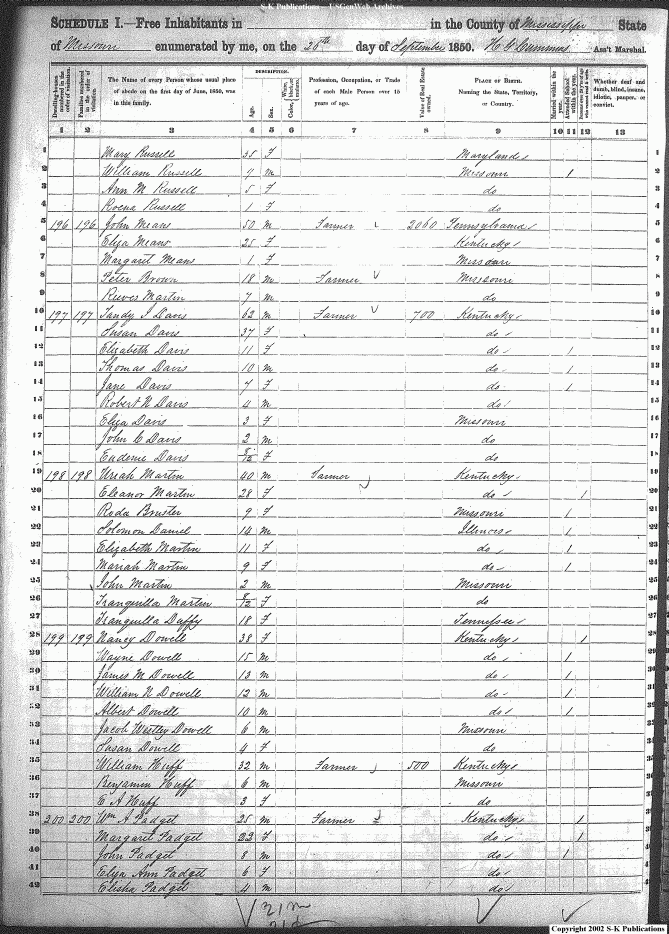 S-K Publications -- USGenWeb Archives
SCHEDULE I.—Free Inhabitants in in the County of Mississippi State
of Missouri enumerated by me, on the 26th day of September 1850. Ass't Marshal.
Dwelling-houses numbered in the order of visitation.
Families numbered in the order of visitation.
The Name of every Person whose usual place of abode on the first day of June, 1850, was in this family.
DESCRIPTION.
Age.
Sex.
Color, White, black, or mulatto.
Profession, Occupation, or Trade of each Male Person over 15 years of age.
Value of Real Estate owned.
PLACE OF BIRTH. Naming the State, Territory, or Country.
Married within the year.
Attended School within the year.
Whether deaf and dumb, blind, insane, idiotic, pauper, or convict.
1 2 3 4 5 6 7 8 9 10 11 12 13
1 Mary Russell 38 F Maryland 1
2 William Russell 7 m Missouri / 2
3 Ann M Russell 5 F do 3
4 Roena Russell 1 F do 4
5 196 196 John Means 50 m Farmer 2060 Pennsylvania 5
6 Eliza Means 25 F Kentucky 6
7 Margaret Means 1 F Missouri 7
8 Peter Brown 18 m Farmer Missouri 8
9 Reeves Martin 7 m do 9
10 197 197 Sandy J Davis 62 m Farmer 700 Kentucky 10
11 Susan Davis 37 F do 11
12 Elizabeth Davis 11 F do / 12
13 Thomas Davis 10 m do / 13
14 Jane Davis 7 F do / 14
15 Robert N Davis 4 m do 15
16 Eliza Davis 3 F Missouri 16
17 John C Davis 2 m do 17
18 Eudenie Davis F do 18
19 198 198 Uriah Martin 40 m Farmer Kentucky 19
20 Eleanor Martin 28 F do / 20
21 Roda Bruster 9 F Missouri / 21
22 Solomon Daniel 14 m Illenois / 22
23 Elizabeth Martin 11 F do / 23
24 Mariah Martin 9 F do / 24
25 John Martin 2 m Missouri 25
26 Tranquilla Martin 8/12 F do 26
27 Tranquilla Daffy 18 F Tennessee 27
28 199 199 Nancy Dowell 38 F Kentucky / 28
29 Wayne Dowell 15 m do / 29
30 James M Dowell 13 m do / 30
31 William N Dowell 12 m do / 31
32 Albert Dowell 10 m do / 32
33 Jacob Westley Dowell 6 m Missouri 33
34 Susan Dowell 4 F do 34
35 William Huff 32 m Farmer 500 Kentucky 35
36 Benjamin Huff 6 m Missouri 36
37 E A Huff 3 F do 37
38 200 200 Wm A Padget 25 m Farmer Kentucky / 38
39 Margaret Padget 22 F do / 39
40 John Padget 8 m do / 40
41 Eliza Ann Padget 6 F do 41
42 Elisha Padget 4 m do 42
21 m
Copyright 2002 S-K Publications